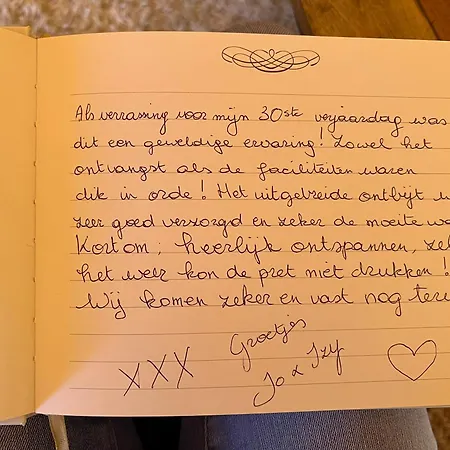 Als verrassing voor mijn 30ste verjaardag was
dit een geweldige ervaring! Zowel het
ontvangst als de faciliteiten waren
dik in orde! Het uitgebreide ontbijt
zeer goed verzorgd en zeker de moeite
Kortom; heerlijk ontspannen,
het weer kon de pret niet drukken!
Wij komen zeker en vast nog
Groetjes
XXX
Jo & Izy